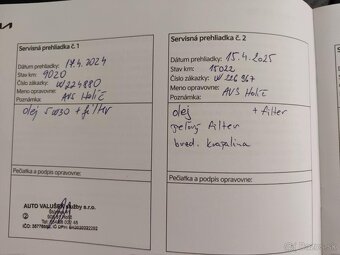 KIA
Servisná prehliadka č. 1
Dátum prehliadky: 17.4.2024
Stav km: 9020
Číslo zákazky: W224880
Meno opravovne: AVS Holíč
Poznámka:
olej 5w30 + filter
Pečiatka a podpis opravovne:
AUTO VALUŠEK služby s.r.o.
Servisná prehliadka č. 2
Dátum prehliadky: 15.4.2025
Stav km: 15022
Číslo zákazky: W226367
Meno opravovne: AVS Holíč
Poznámka:
olej + filter
peľový filter
brzd. kvapalina
Pečiatka a podpis opravovne: